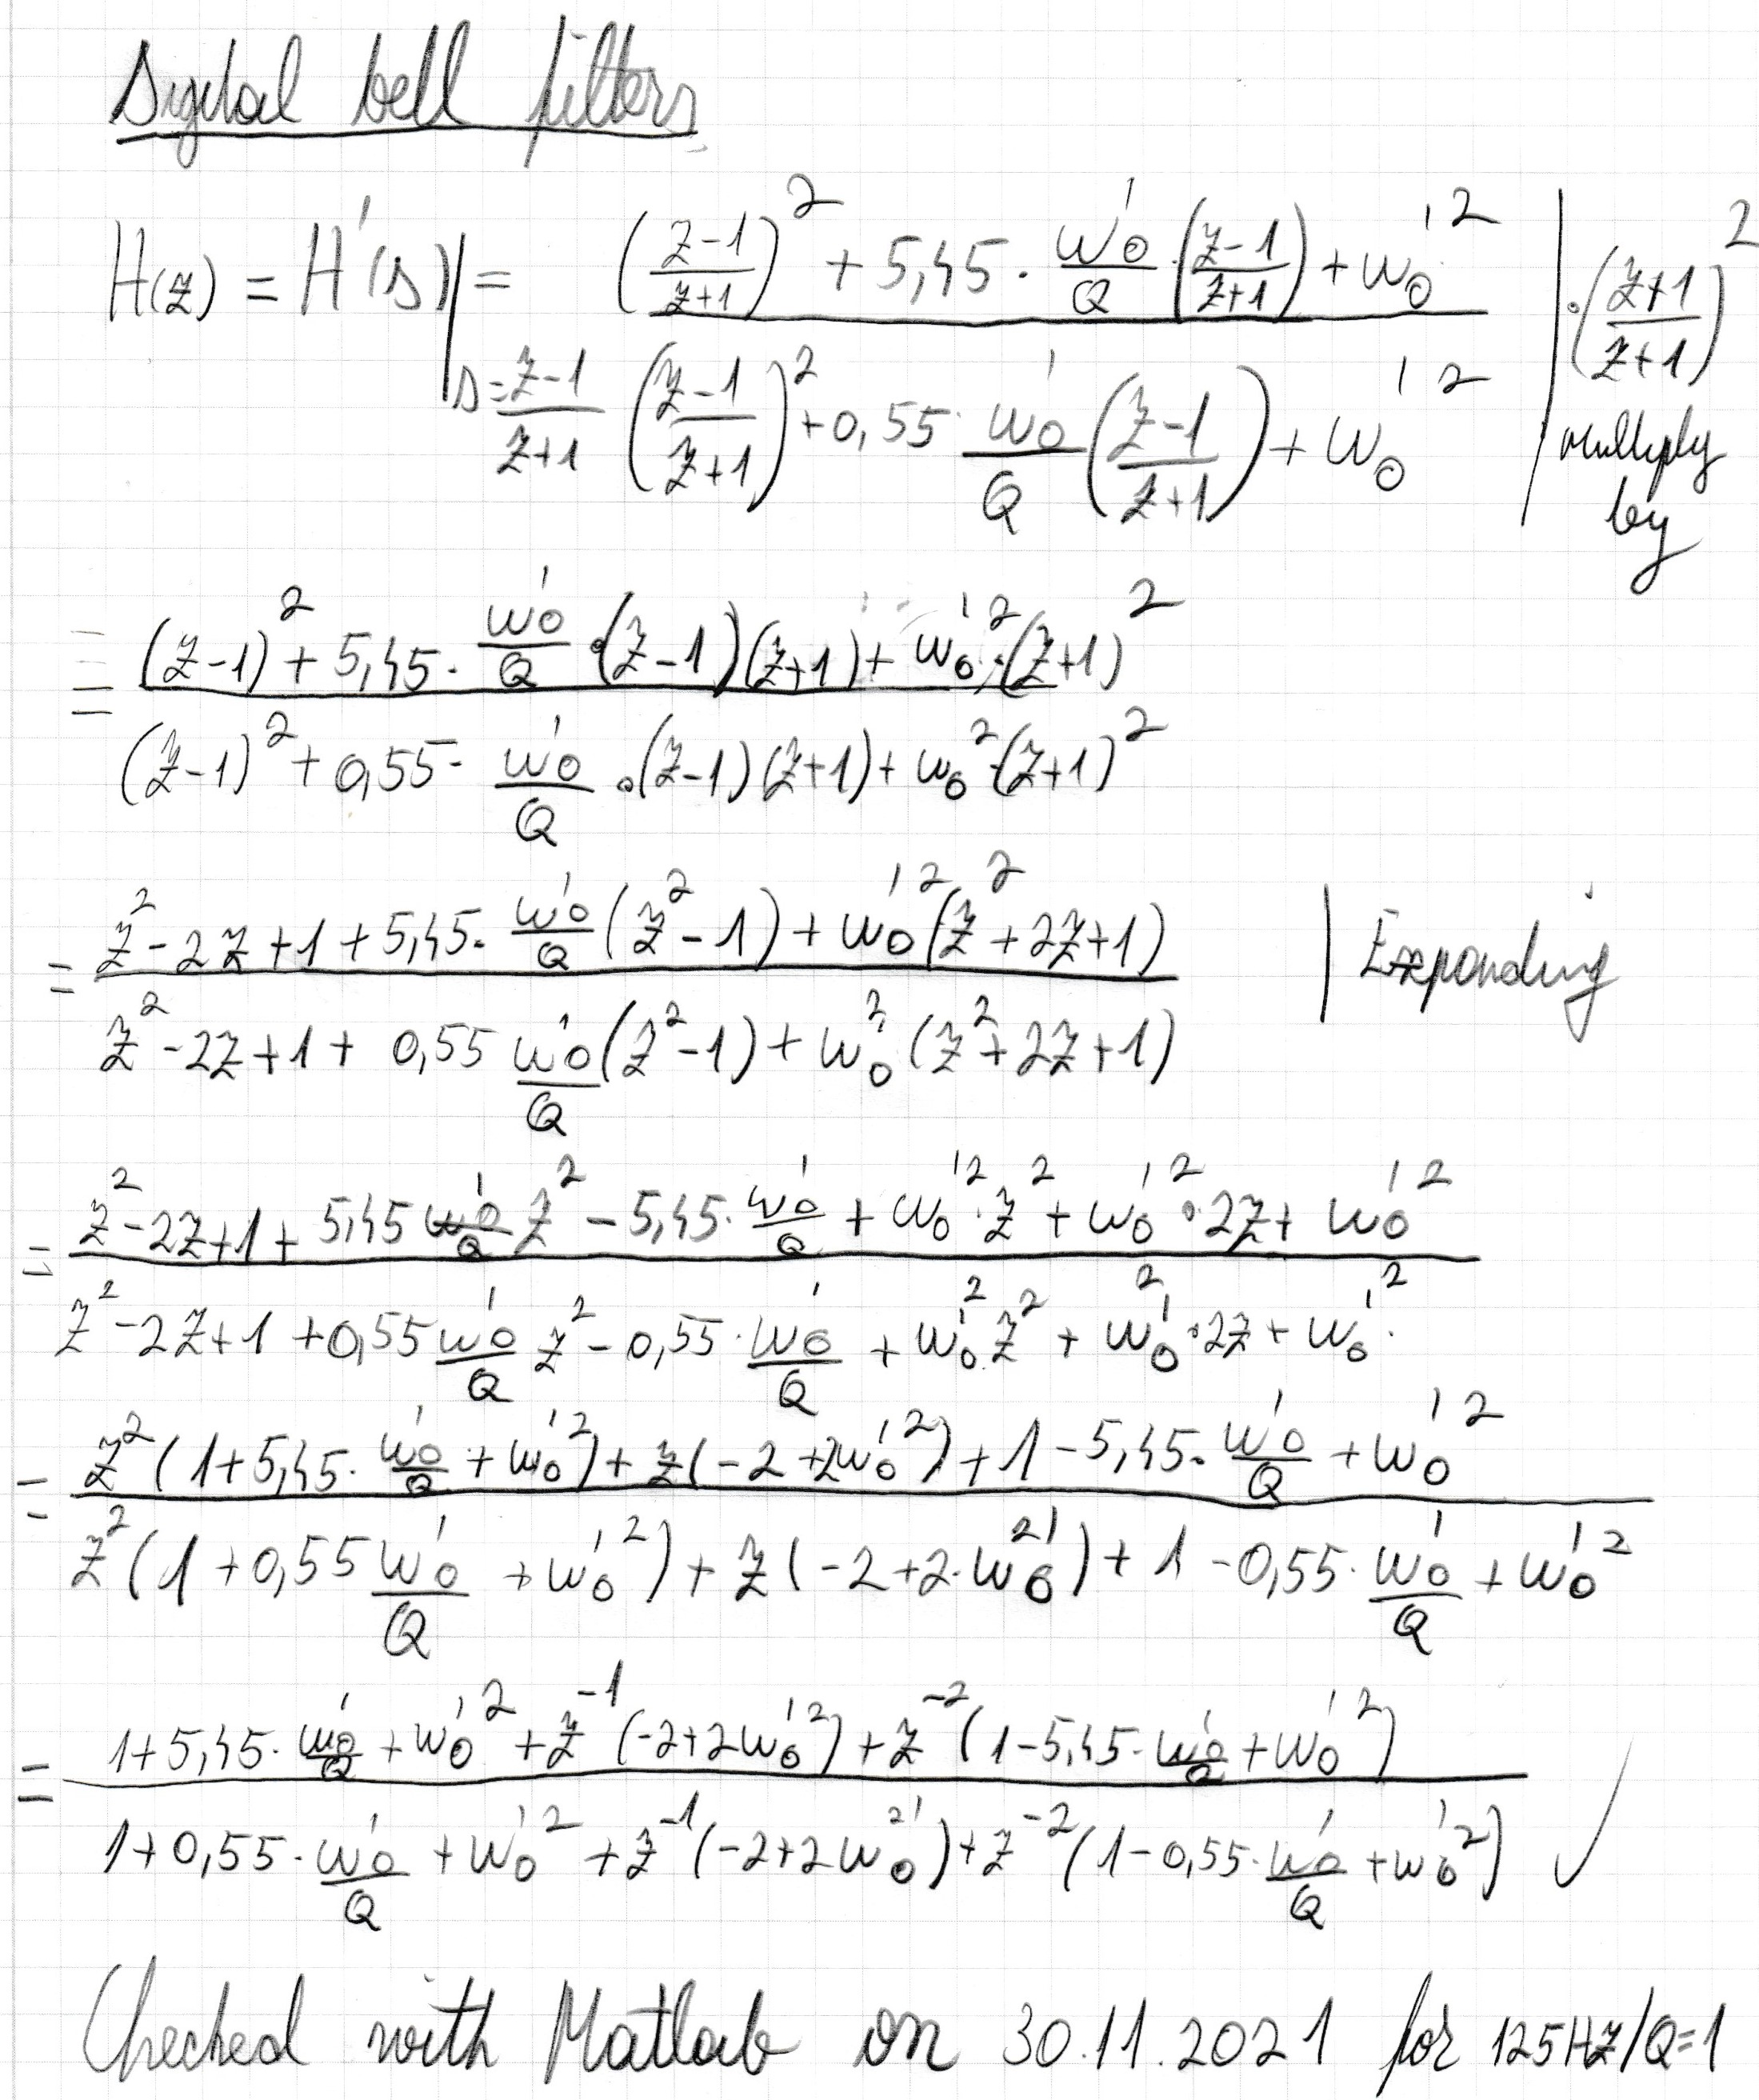 Digital bell filters
H(z) = H'(s)|_{s = \frac{z-1}{z+1}} = \frac{(\frac{z-1}{z+1})^2 + 5,45 · \frac{ω_0'}{Q} · (\frac{z-1}{z+1}) + ω_0'^2}{(\frac{z-1}{z+1})^2 + 0,55 · \frac{ω_0'}{Q} (\frac{z-1}{z+1}) + ω_0'^2} | · (\frac{z+1}{z+1})^2 multiply by
= \frac{(z-1)^2 + 5,45 · \frac{ω_0'}{Q} · (z-1)(z+1) + ω_0'^2 · (z+1)^2}{(z-1)^2 + 0,55 · \frac{ω_0'}{Q} · (z-1)(z+1) + ω_0^2 · (z+1)^2}
= \frac{z^2 - 2z + 1 + 5,45 · \frac{ω_0'}{Q} (z^2 - 1) + ω_0'^2 (z^2 + 2z + 1)}{z^2 - 2z + 1 + 0,55 \frac{ω_0'}{Q} (z^2 - 1) + ω_0'^2 (z^2 + 2z + 1)} | Expanding
= \frac{z^2 - 2z + 1 + 5,45 \frac{ω_0'}{Q} z^2 - 5,45 · \frac{ω_0'}{Q} + ω_0'^2 · z^2 + ω_0'^2 · 2z + ω_0'^2}{z^2 - 2z + 1 + 0,55 \frac{ω_0'}{Q} z^2 - 0,55 · \frac{ω_0'}{Q} + ω_0'^2 z^2 + ω_0'^2 · 2z + ω_0'^2}
= \frac{z^2 (1 + 5,45 · \frac{ω_0'}{Q} + ω_0'^2) + z(-2 + 2ω_0'^2) + 1 - 5,45 · \frac{ω_0'}{Q} + ω_0'^2}{z^2 (1 + 0,55 \frac{ω_0'}{Q} + ω_0'^2) + z(-2 + 2 · ω_0'^2) + 1 - 0,55 · \frac{ω_0'}{Q} + ω_0'^2}
= \frac{1 + 5,45 · \frac{ω_0'}{Q} + ω_0'^2 + z^{-1} (-2 + 2ω_0'^2) + z^{-2} (1 - 5,45 · \frac{ω_0'}{Q} + ω_0'^2)}{1 + 0,55 · \frac{ω_0'}{Q} + ω_0'^2 + z^{-1} (-2 + 2ω_0'^2) + z^{-2} (1 - 0,55 · \frac{ω_0'}{Q} + ω_0'^2)} ✓
Checked with Matlab on 30.11.2021 for 125Hz/Q=1